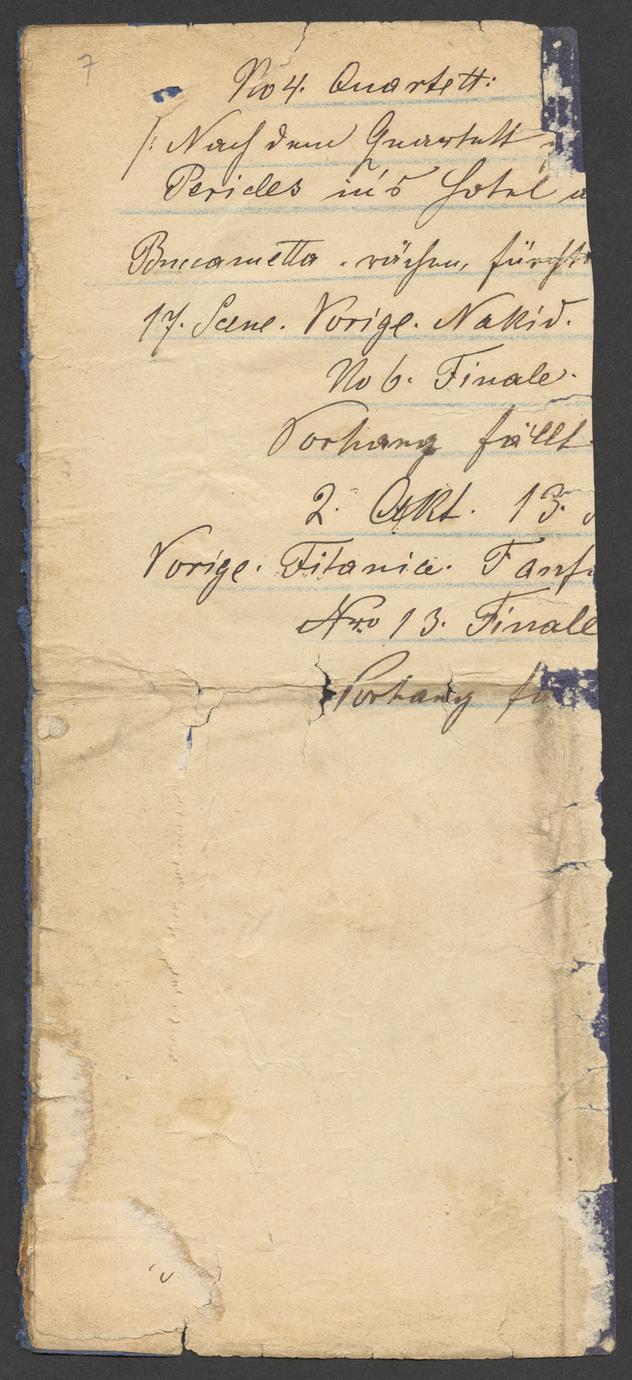 7
No 4. Quartett:
/: Nach dem Quartett
Pericles in's Hotel a
Buccametta. rächen, fürcht
17. Scene. Vorige. Nakid.
No 6. Finale.
Vorhang fällt.
2. Akt. 13.
Vorige. Titania. Fanf
Nro 13. Finale
Vorhang fä